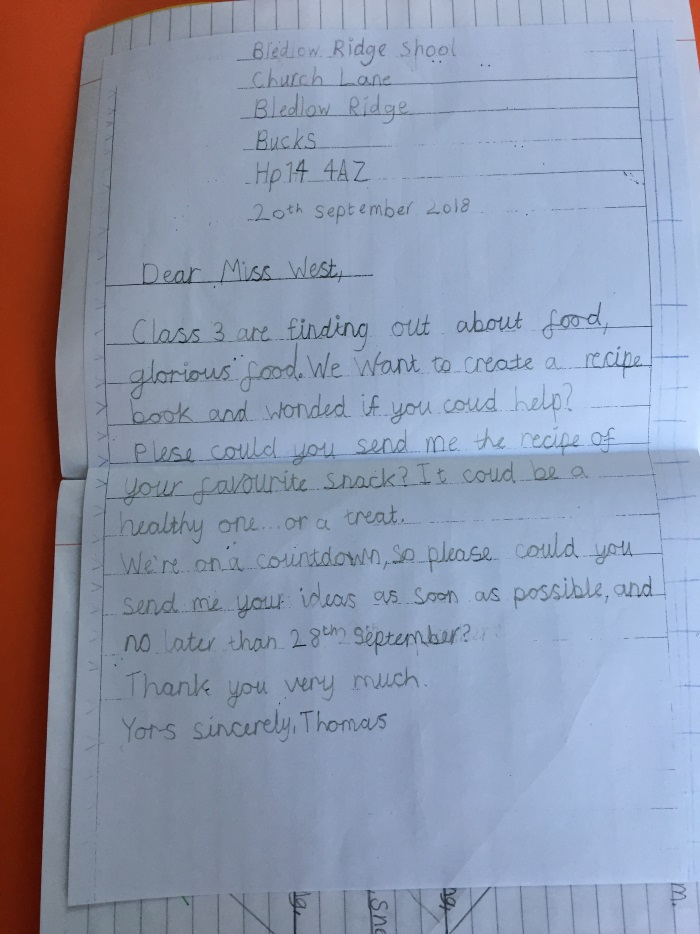 Bledlow Ridge Shool
Church Lane
Bledlow Ridge
Bucks
Hp14 4AZ
20th September 2018
Dear Miss West,
Class 3 are finding out about food,
glorious food. We want to create a recipe
book and wonded if you coud help?
Plese could you send me the recipe of
your favourite snack? It coud be a
healthy one... or a treat.
We're on a countdown, so please could you
send me your ideas as soon as possible, and
no later than 28th September?
Thank you very much.
Yors sincerely, Thomas